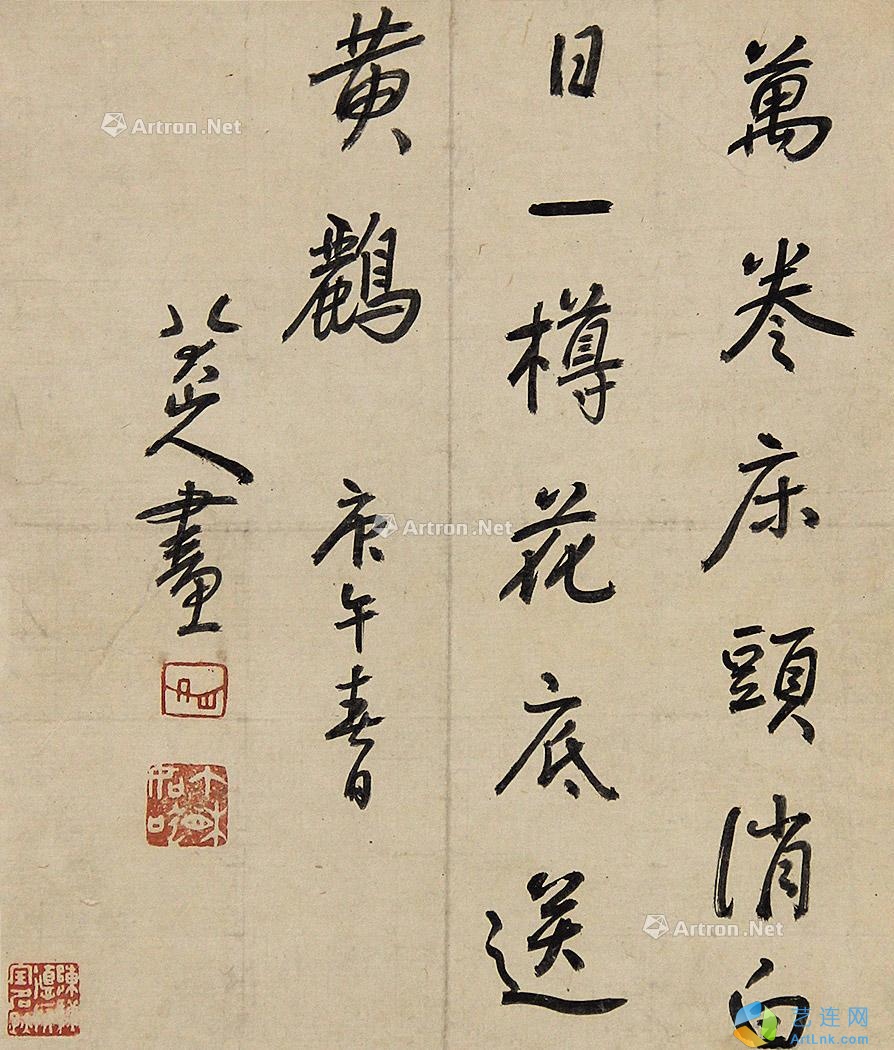 萬卷床頭消白
日一樽花底送
黄鸝 庚午春日
八大山人畫
Artron.Net
Artron.Net
Artron.Net
艺连网
ArtLnk.com